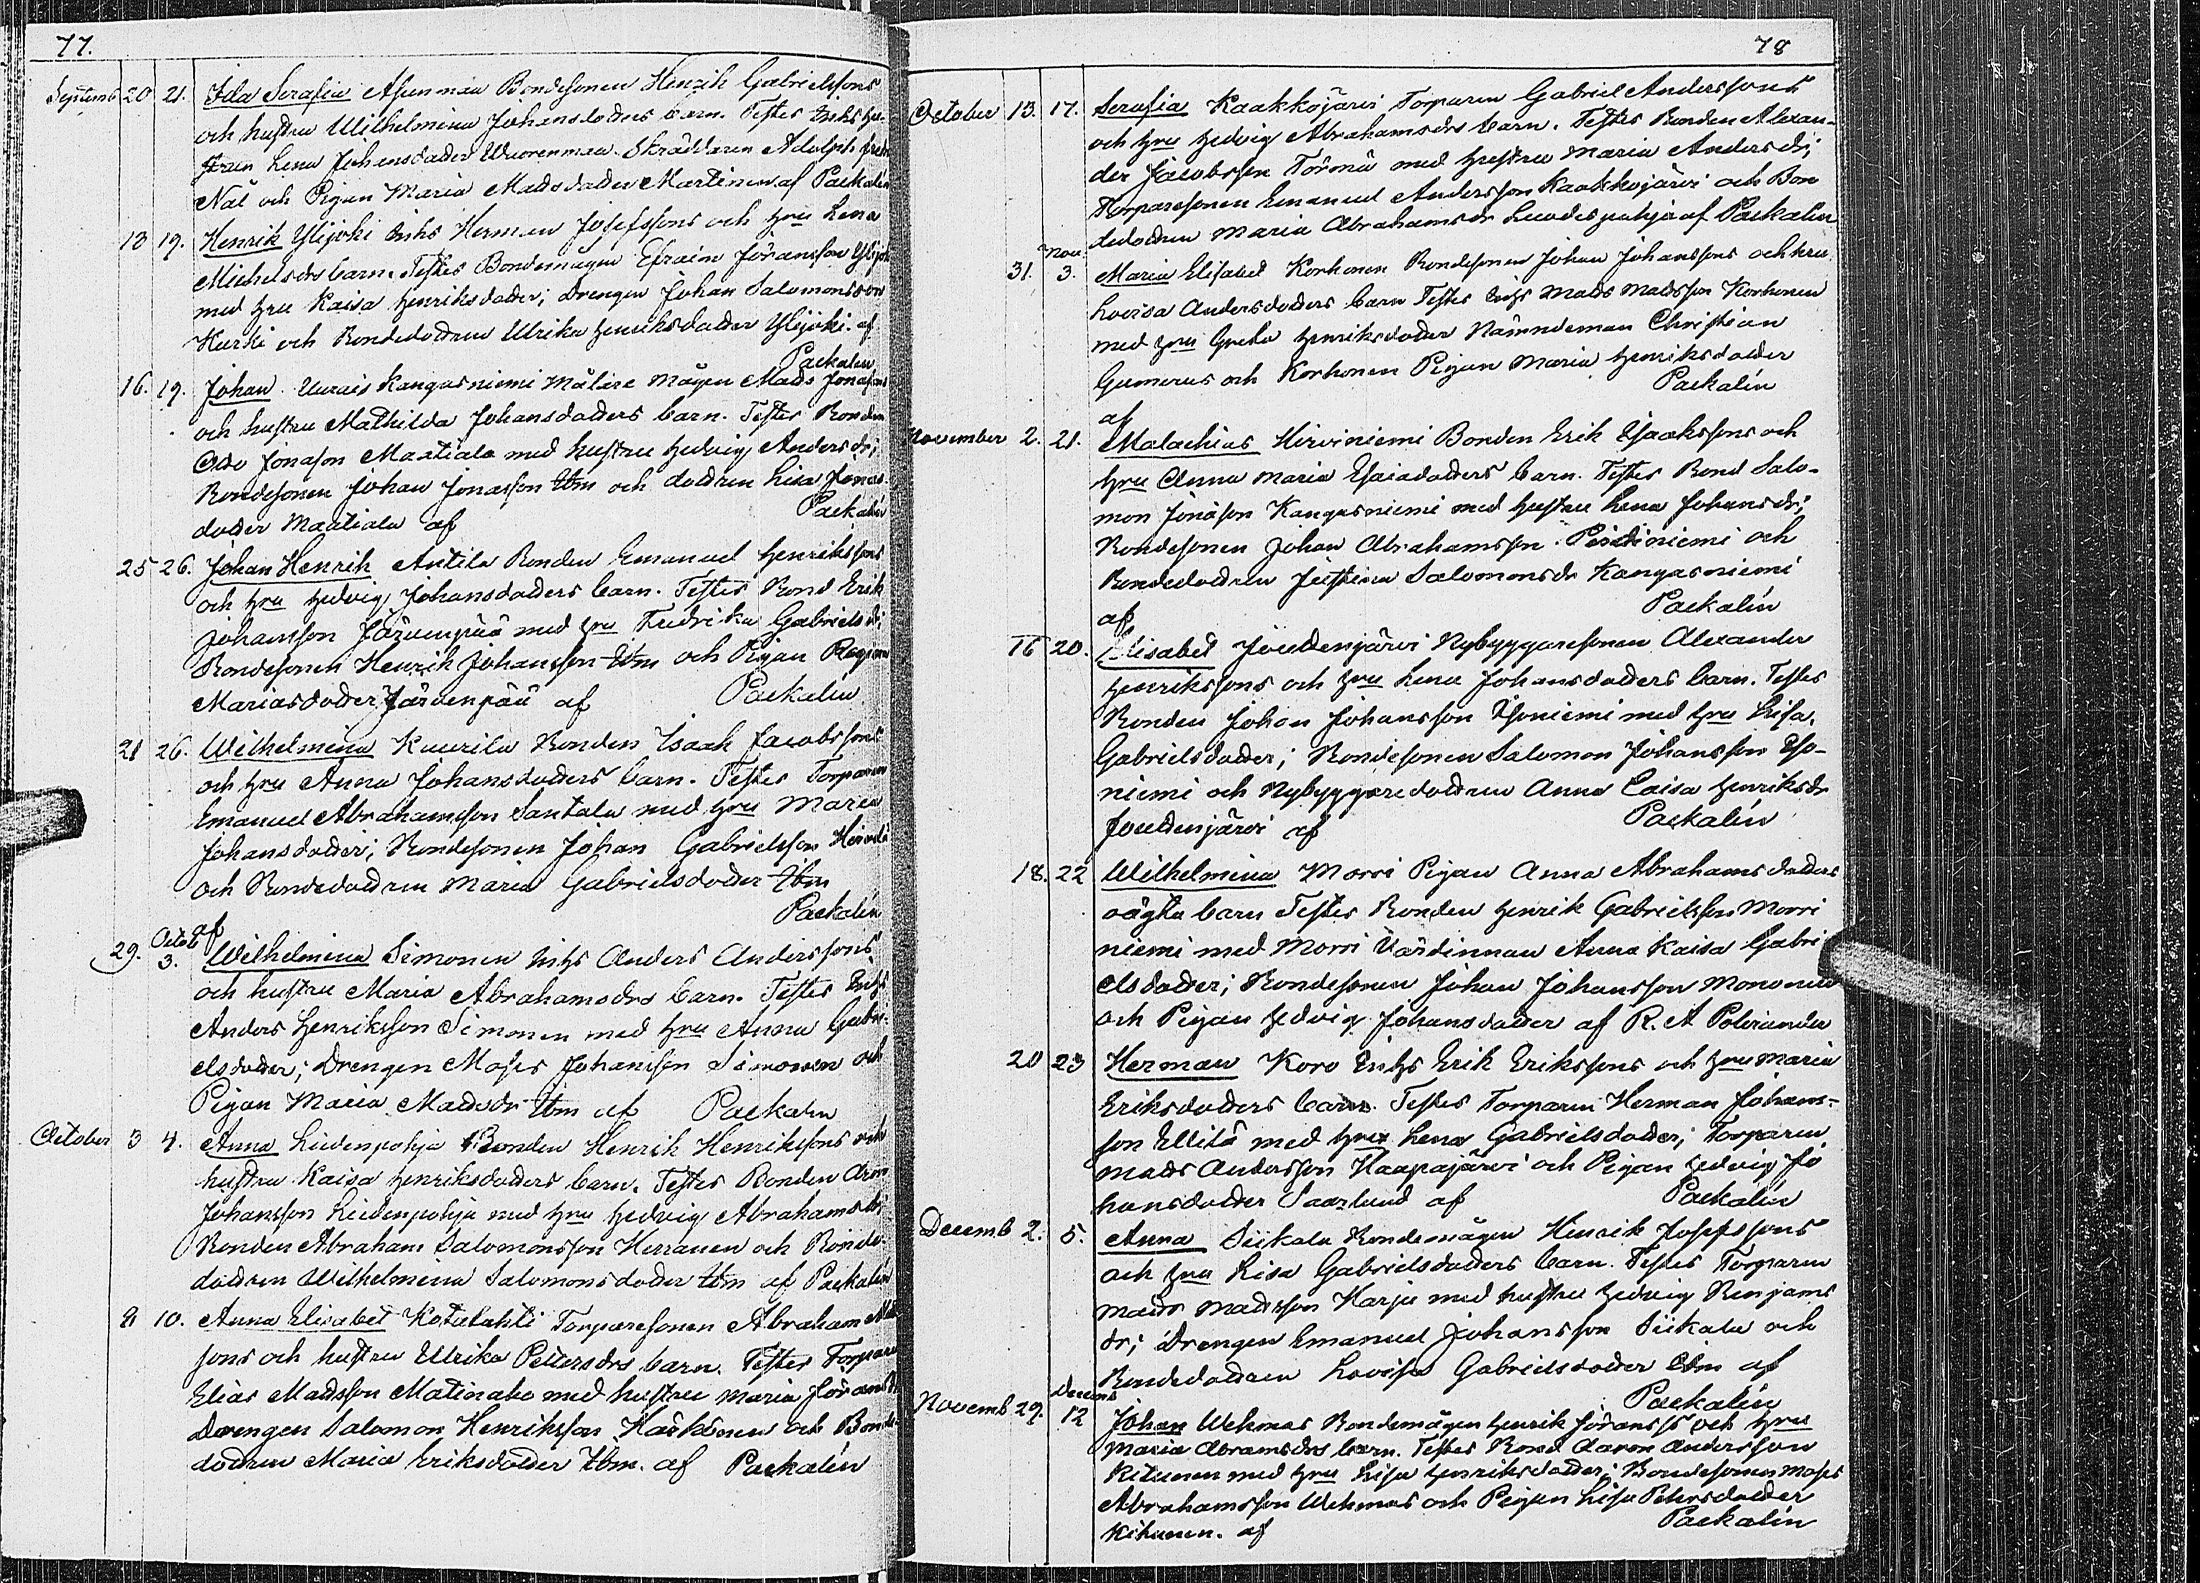 77.
Septemb 20 21. Ida Serafia Asunmaa Bondesonen Henrik Gabrielssons
och hustru Wilhelmina Johansdotters barn. Testes Inhs hu-
strun Lena Johansdotter Wuorenmaa. Skräddaren Adolph
Näl och Pigan Maria Madsdotter Martinen af Paekalén
13 19. Henrik Ylijoki Inhs Herman Josefssons och hru Lena
Michelsdrs barn. Testes Bondemågen Efraim Göransson Ylijoki
med hru Kaisa Henriksdotter; Drengen Johan Salomonsson
Kurki och Bondedottren Ulrika Henriksdotter Ylijoki. af
Paekalén
16. 19. Johan Uurais Kangasniemi Målare mågen Mads Jonassons
och hustru Mathilda Johansdotters barn. Testes Bonden
Otto Jonason Maatiala med hustru Hedvig Andersdr;
Bondesonen Johan Jonasson Ibm och dottren Lisa Jonas-
dotter Maatiala af Paekalén
25 26. Johan Henrik Antila Bonden Emanuel Henrikssons
och hru Hedvig Johansdotters barn. Testes Bond Erik
Johansson Järvenpää med hru Fredrika Gabrielsdr;
Bondesonen Henrik Johansson Ibm och Pigan Regina
Mariasdotter Järvenpää af Paekalén
21 26. Wilhelmina Kuurila Bonden Isaak Jacobssons
och hru Anna Johansdotters barn. Testes Torparen
Emanuel Abrahamsson Santala med hru Maria
Johansdotter; Bondesonen Johan Gabrielsson
och Bondedottren Maria Gabrielsdotter Ibm
af Paekalén
29. Octob 3. Wilhelmina Simonen Inhs Anders Anderssons
och hustru Maria Abrahamsdrs barn. Testes Inhs
Anders Henriksson Simonen med hru Anna Gabri-
elsdotter; Drengen Moses Johansson Simonen och
Pigan Maria Madsdr Ibm af Paekalén
October 3 4. Anna Liedenpohja Bonden Henrik Henrikssons och
hustru Kaisa Henriksdotters barn. Testes Bonden Aron
Johansson Liedenpohja med hru Hedvig Abrahamsdr;
Bonden Abraham Salomonsson Herranen och Bonde-
dottren Wilhelmina Salomonsdotter Ibm af Paekalén
8 10. Anna Elisabet Kotalahti Torparesonen Abraham
sons och hustru Ulrika Pettersdrs barn. Testes Torparen
Elias Madsson Matinaho med hustru Maria Göransdr
Drengen Salomon Henriksson Kärkäinen och Bonde-
dottren Maria Eriksdotter Ibm. af Paekalén
78
October 13. 17. Serafia Kaakkojärvi Torparen Gabriel Anderssons
och hru Hedvig Abrahamsdrs barn. Testes Bonden Alexan-
der Jacobsson Törmä med hustru Maria Andersdr;
Torparesonen Emanuel Andersson Kaakkojärvi och Bon
dedottren Maria Abrahamsdr Luodespohja af Paekalén
31. Nov 3. Maria Elisabet Korhonen Bondesonen Johan Johanssons och hru
Lovisa Andersdotters barn Testes Inhs Mads Madsson Korhonen
med hru Greta Henriksdotter Nämndeman Christian
Gumerus och Korhonen Pigan Maria Henriksdotter
af Paekalén
November 2. 21. Malachias Hirviniemi Bonden Erik Esaakssons och
hru Anna Maria Esaiadotters barn. Testes Bond Salo-
mon Jonason Kangasniemi med hustru Lena Johansdr;
Bondesonen Johan Abrahamsson niemi och
Bondedottren Justina Salomonsdr Kangasniemi
af Paekalén
16 20. Elisabet Jouttenjärvi Nybyggaresonen Alexander
Henrikssons och hru Lena Johansdotters barn. Testes
Bonden Johan Johansson Isoniemi med hru Lisa.
Gabrielsdotter; Bondesonen Salomon Johansson Iso-
niemi och Nybyggaredottren Anna Caisa Henriksdr
Jouttenjärvi af Paekalén
18. 22 Wilhelmina Morri Pigan Anna Abrahamsdotters
oägta barn Testes Bonden Henrik Gabrielsson Morri
niemi med Morri Värdinnan Anna Kaisa Gabri
elsdotter; Bondesonen Johan Johansson Mononen
och Pigan Hedvig Johansdotter af R. A Polviander
20 23 Herman Koro Inhs Erik Erikssons och hru Maria
Eriksdotters barn. Testes Torparen Herman Johans-
son Ellilä med hru Lena Gabrielsdotter; Torparen
Mads Andersson Haapajärvi och Pigan Hedvig Jo
hansdotter Saarlund af Paekalén
Decemb 2. 5. Anna Siikala Bondemågen Henrik Josefssons
och hru Lisa Gabrielsdotters barn. Testes Torparen
Mads Madsson Harju med hustru Hedvig Benjams
dr; Drengen Emanuel Johansson Siikala och
Bondedottren Lovisa Gabrielsdotter Ibm af
Paekalén
Novemb 29. Decemb 12 Johan Wehmas Bondemågen Henrik Göranss och hru
Maria Abramsdrs barn. Testes Bond Aaron Andersson
Kitunen med hru Lisa Henriksdotter; Bondesonen Moses
Abrahamsson Wehmas och Pigan Lisa Petersdotter
Kihunen. af Paekalén